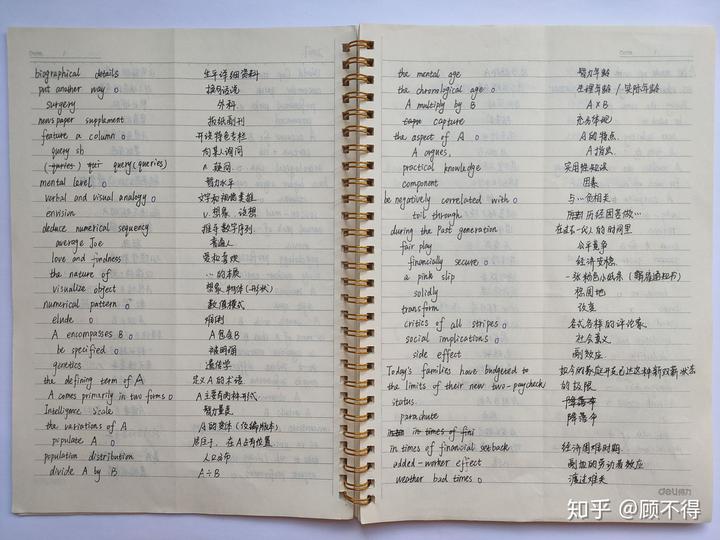 biographical details 生平详细资料
put another way 换句话说
surgery 外科
newspaper supplement 报纸副刊
feature a column 开设特色专栏
query sb 向某人询问
(queries) query (queries) n. 疑问
mental level 智力水平
verbal and visual analogy 文字和视觉类推
envision v. 想象 设想
deduce numerical sequency 推导数字序列
average Joe 普通人
love and fondness 爱和喜欢
the nature of …的本质
visualize object 想象物体(形状)
numerical pattern 数值模式
elude 难倒
A encompasses B A包含B
be specified 被明确
genetics 遗传学
the defining term of A 定义A的术语
A comes primarily in two forms A主要有两种形式
Intelligence Scale 智力量表
the variations of A A的变体(改编版本)
populate A 居住于、在A占有位置
population distribution 人口分布
divide A by B A÷B
the mental age 智力年龄
the chronological age 生理年龄/实际年龄
A multiply by B A×B
capture
the aspect of A A的特点
A argues, A指出
practical knowledge 实用性知识
component 因素
be negatively correlated with 与…负相关
toil through 历经困苦做…
during the past generation 在过去一代人的时间里
fair play 公平竞争
financially secure 经济安稳
a pink slip 一张粉色小纸条(解雇通知书)
solidly 稳固地
transform 改变
critics of all stripes 各式各样的评论家
social implications 社会意义
side effect 副效应
Today's families have budgeted to 如今的家庭开支已达这种新双薪状态
the limits of their new two-paycheck 的极限
status. 降落伞
parachute 降落伞
in times of fini
in times of financial setback 经济困难时期
added-worker effect 附加的劳动者效应
weather bad times 渡过难关
deli得力
知乎 @顾不得